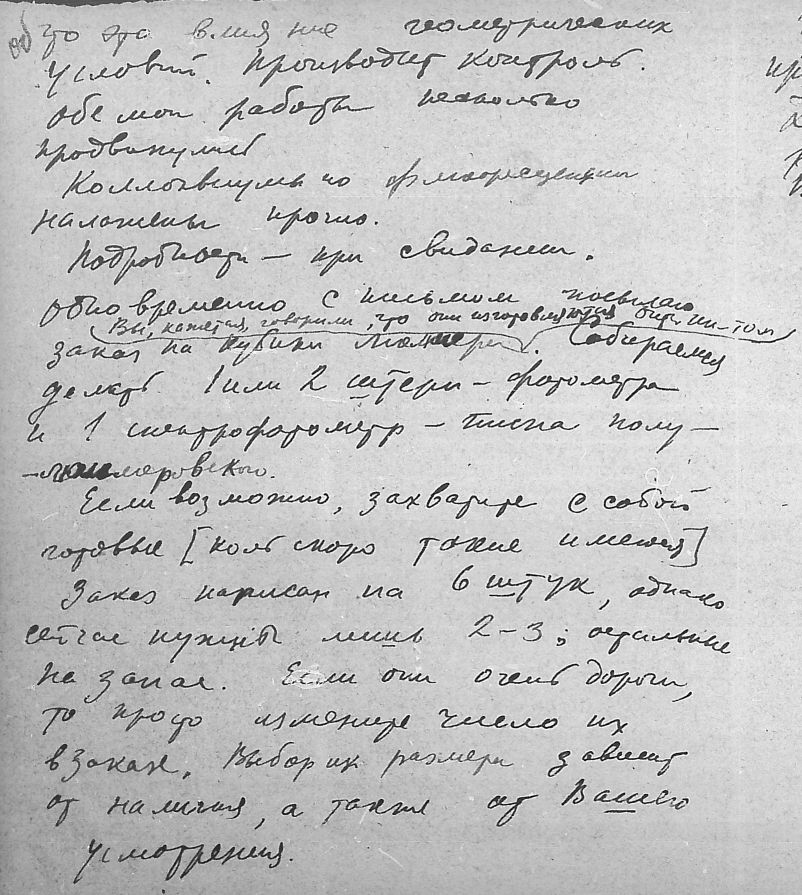 что это влияние геометрических
условий. Производит контроль.
обе мои работы несколько
продвинулись
Коллоквиумы по флюоресценции
налажены прочно.
Подробности – при свидании.
одновременно с письмом посылаю
Вы, кажется, говорили, что они изготовляются опти. ин-том
заказ на кубики Люммера. Собираемся
делать 1 или 2 штуки – фотометра
и 1 спектрофотометр – типа полу–
–люммеровского.
Если возможно, захватите с собой
готовые [коль скоро такие имеются]
Заказ написан на 6 штук, однако
сейчас нужны лишь 2–3; остальные
на запас. Если они очень дороги,
то просто измените число их
в заказе. Выбор их размера зависит
от наличия, а также от Вашего
усмотрения.